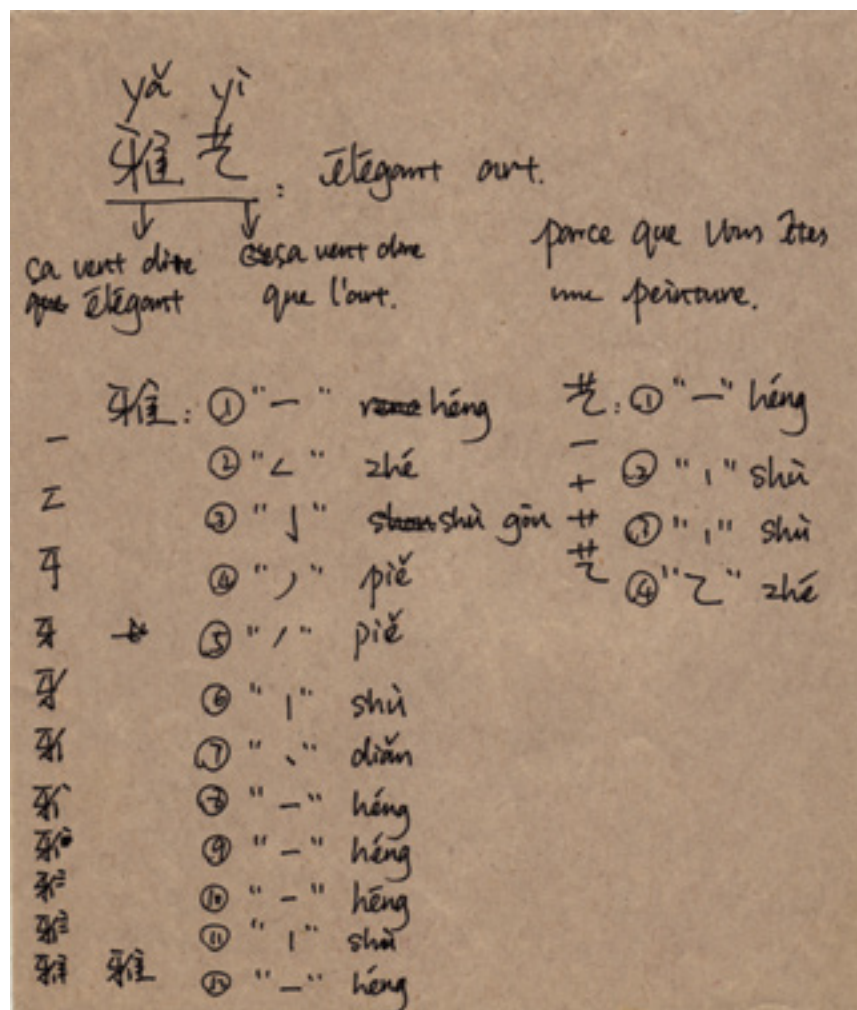 yǎ yì
雅艺 : élégant art.
ça veut dire
que élégant
ça veut dire
que l'art.
parce que vous êtes
une peinture.
雅: ① "一" héng
② "ㄥ" zhé
③ "亅" shù gōu
④ "丿" piě
⑤ "丿" piě
⑥ "丨" shù
⑦ "丶" diǎn
⑧ "一" héng
⑨ "一" héng
⑩ "一" héng
⑪ "丨" shù
⑫ "一" héng
雅
艺: ① "一" héng
② "丨" shù
③ "丨" shù
④ "乙" zhé
一
十
艹
艺